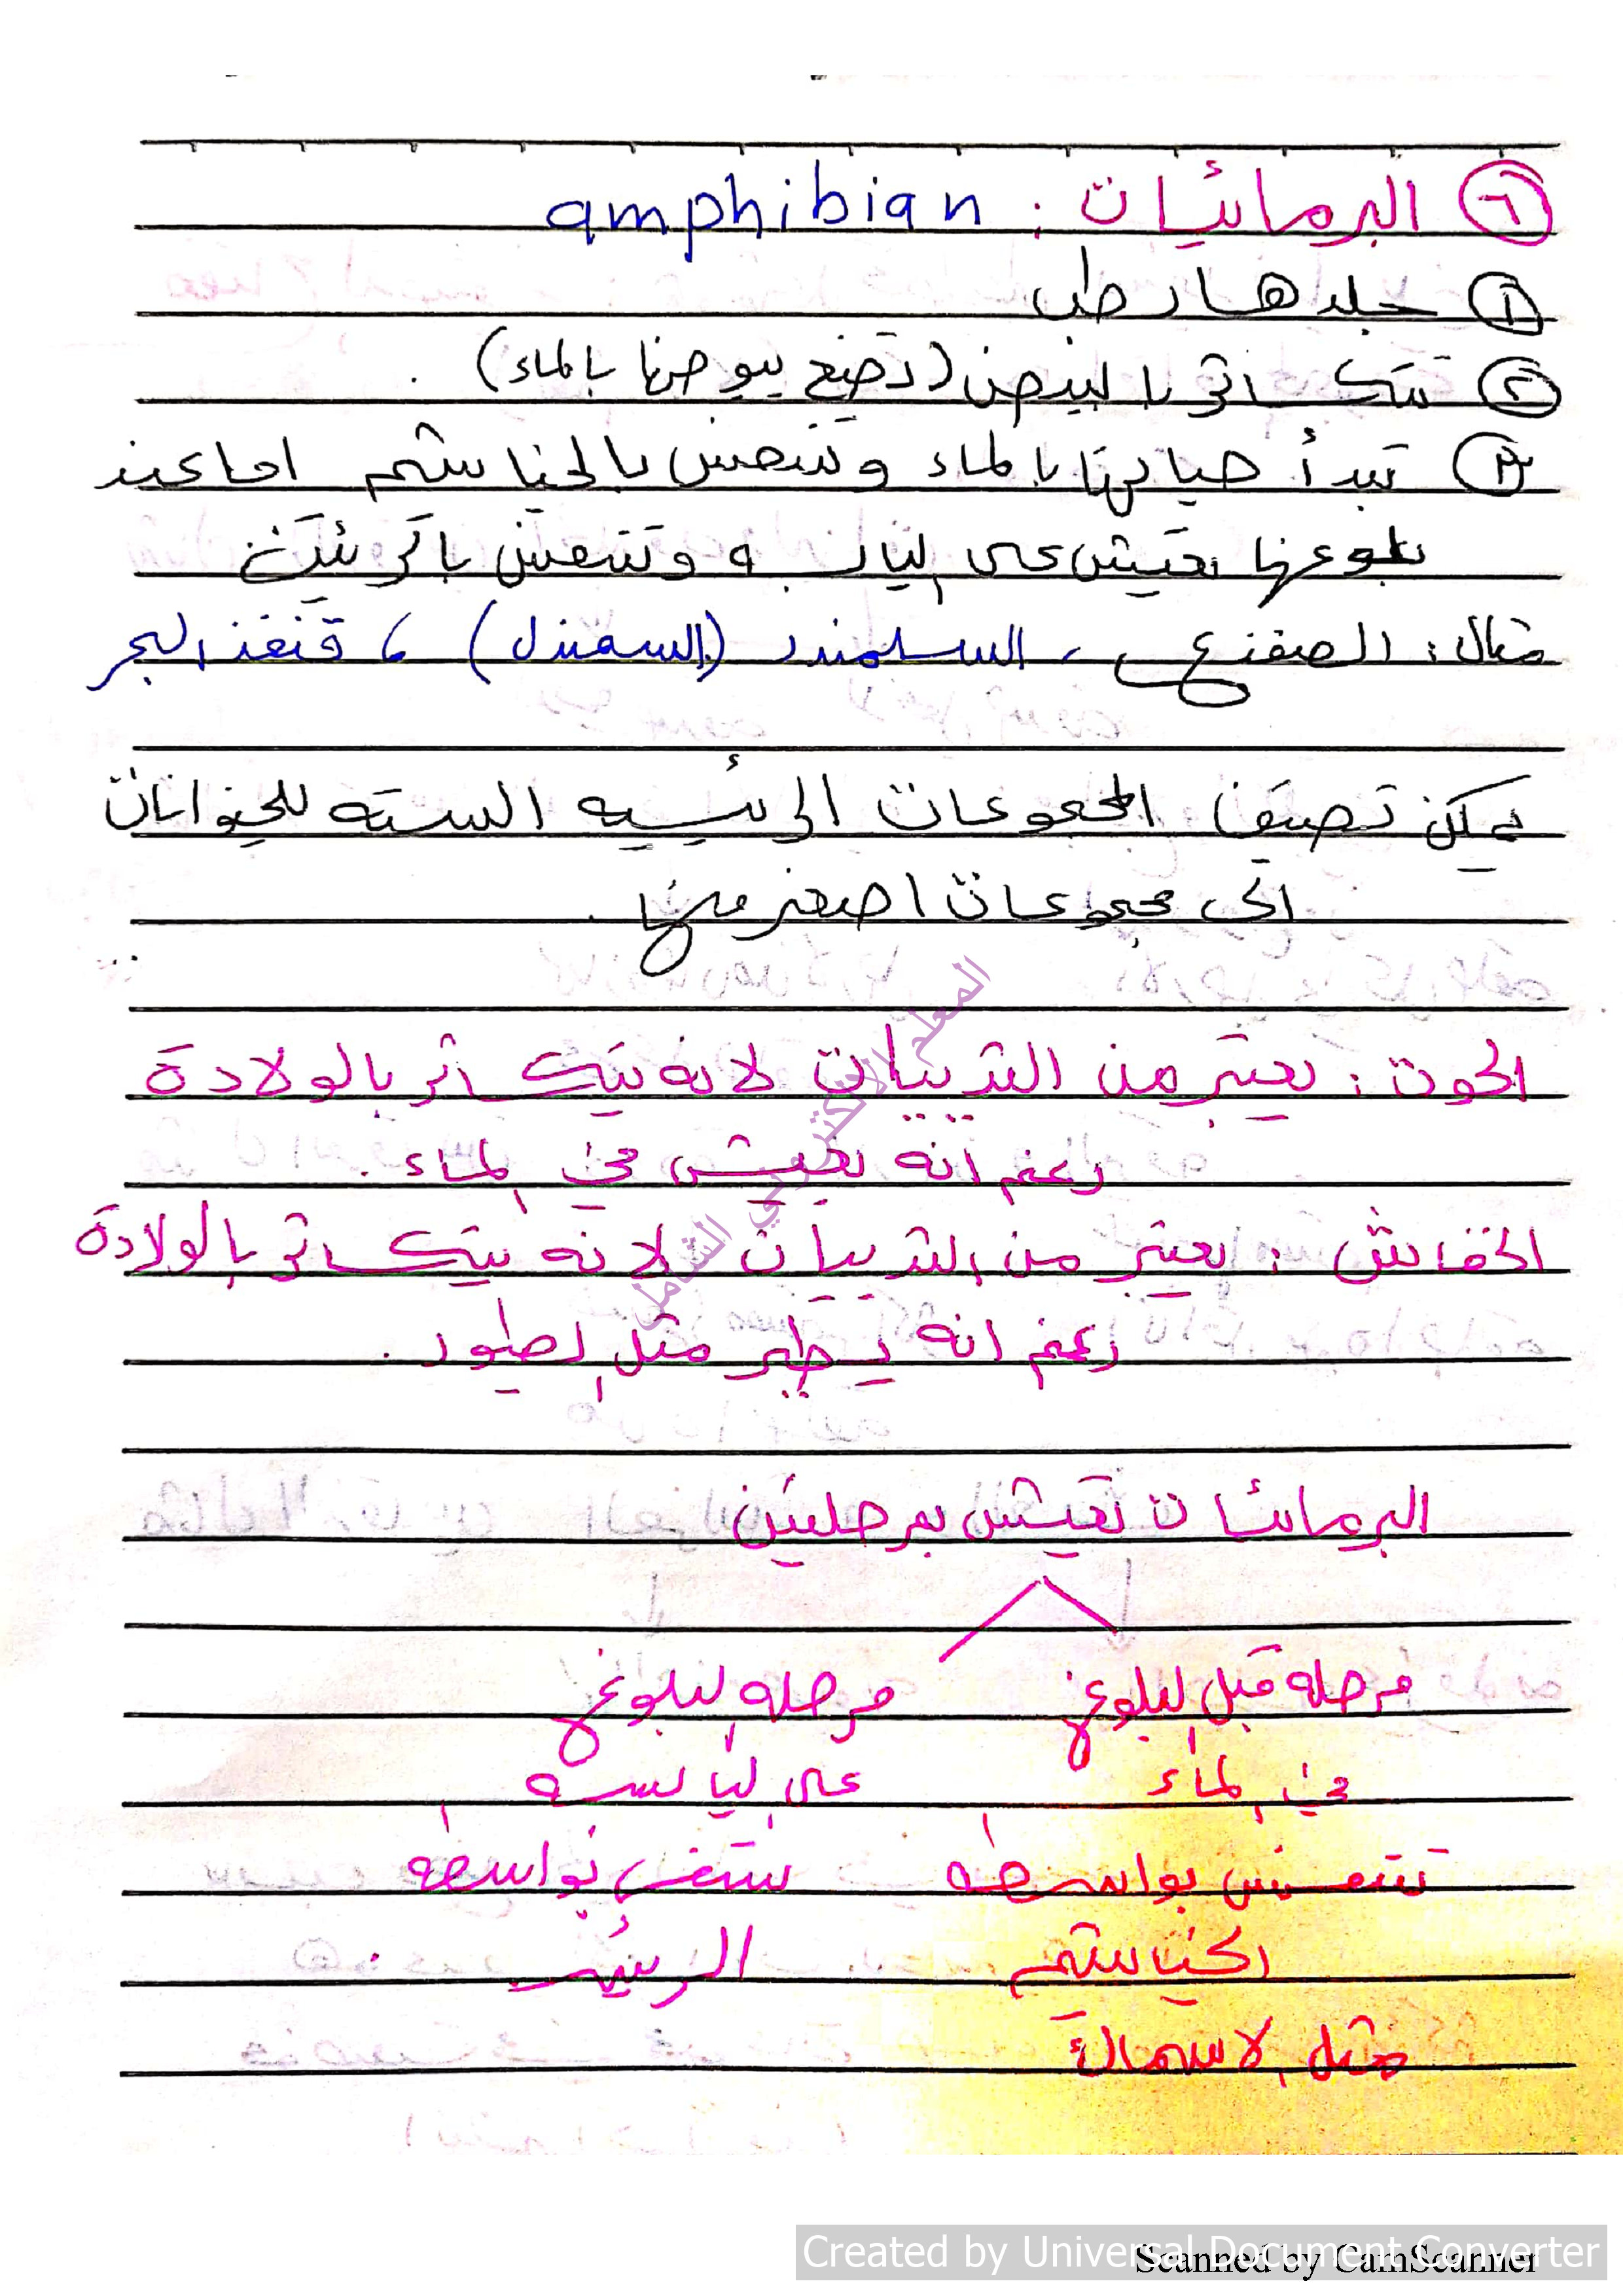 ٦ البرمائيات : amphibian
١ جلدها رطب
٢ تتكاثر بالبيض (تضع بيوضها بالماء) .
٣ تبدأ حياتها بالماء وتتنفس بالخياشيم اما عند
بلوغها تعيش على اليابسه وتتنفس بالرئتين
مثال : الضفدع ، السلمندر (السمندل) ، قنفذ البحر
يمكن تصنيف المجموعات الرئيسيه السته للحيوانات
الى مجموعات اصغر منها .
الحوت : يعتبر من الثدييات لانه يتكاثر بالولادة
رغم انه يعيش في الماء .
الخفاش : يعتبر من الثدييات لانه يتكاثر بالولادة
رغم انه يطير مثل الطيور .
المعلم الالكتروني الشامل
البرمائيات تعيش بمرحلتين
مرحله قبل البلوغ مرحله البلوغ
في الماء على اليابسه
تتنفس بواسطه تتنفس بواسطه
الخياشيم الرئتين
مثل الاسماك
Created by Universal Document Converter
Scanned by CamScanner